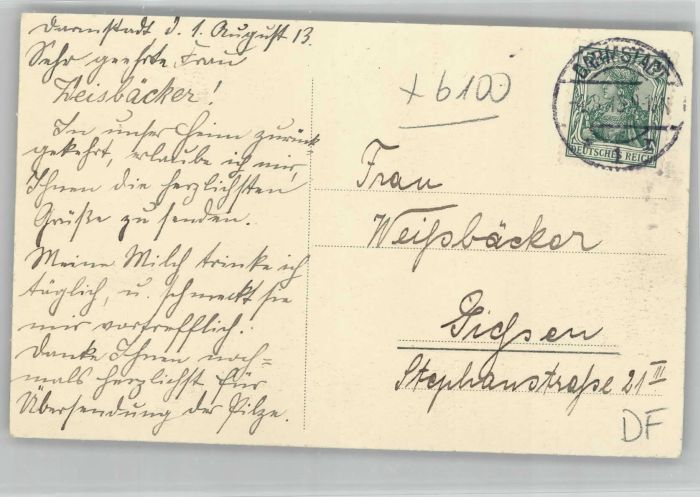 Darmstadt d. 1. August 13.
Sehr geehrte Frau
Weisbäcker!
In unser Heim zurück-
gekehrt, erlaube ich mir,
Ihnen die herzlichsten
Grüße zu senden.
Meine Milch trinke ich
täglich, u. schmeckt sie
mir vortrefflich.
Danke Ihnen noch=
mals herzlichst für
Übersendung der Pilze.
+ 6100
DARMSTADT
1
DEUTSCHES REICH
Frau
Weißbäcker
Gießen
Stephanstraße 21 III
DF